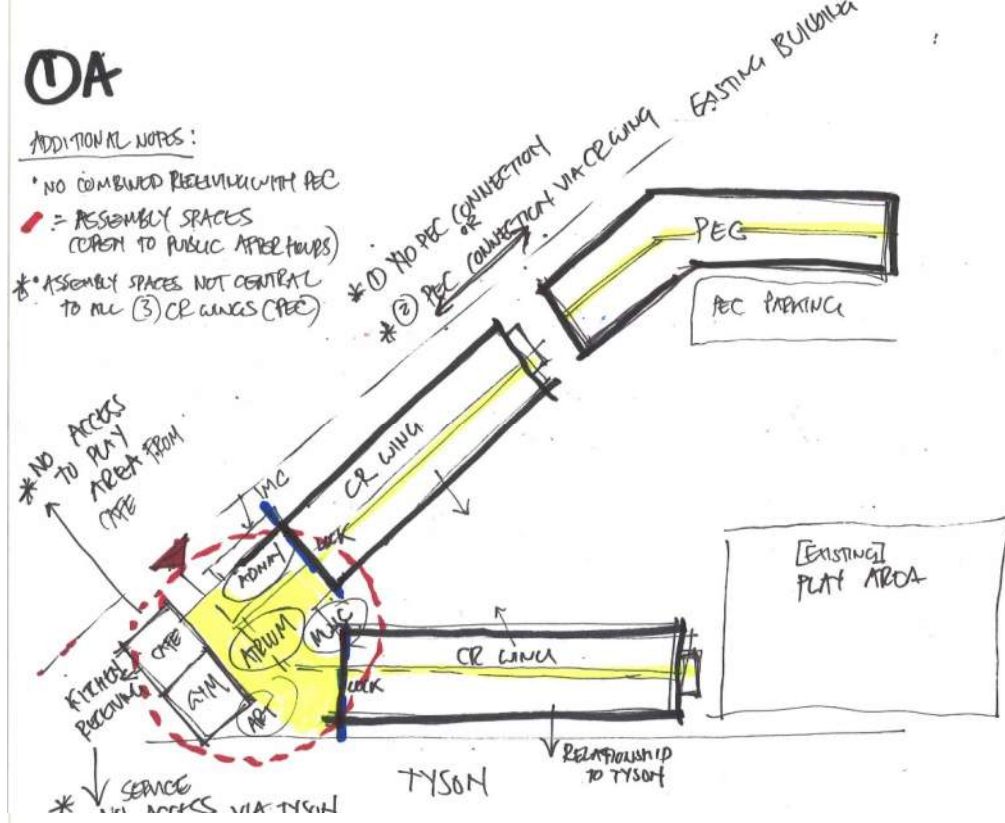 1A
ADDITIONAL NOTES:
• NO COMBINED RECEIVING WITH PEC
= ASSEMBLY SPACES
(OPEN TO PUBLIC AFTER HOURS)
* • ASSEMBLY SPACES NOT CENTRAL
TO ALL (3) CR WINGS (PEC)
EXISTING BUILDING
* ① NO PEC CONNECTION
OR
* ② PEC CONNECTION VIA CR WING
PEC
PEC PARKING
* NO ACCESS
TO PLAY
AREA FROM
CAFE
CR WING
IMC
LOCK
ADMIN
ATRIUM
CAFE
GYM
ART
KITCHEN
RECEIVING
CR WING
LOCK
[EXISTING]
PLAY AREA
RELATIONSHIP
TO TYSON
TYSON
* SERVICE
ACCESS VIA TYSON